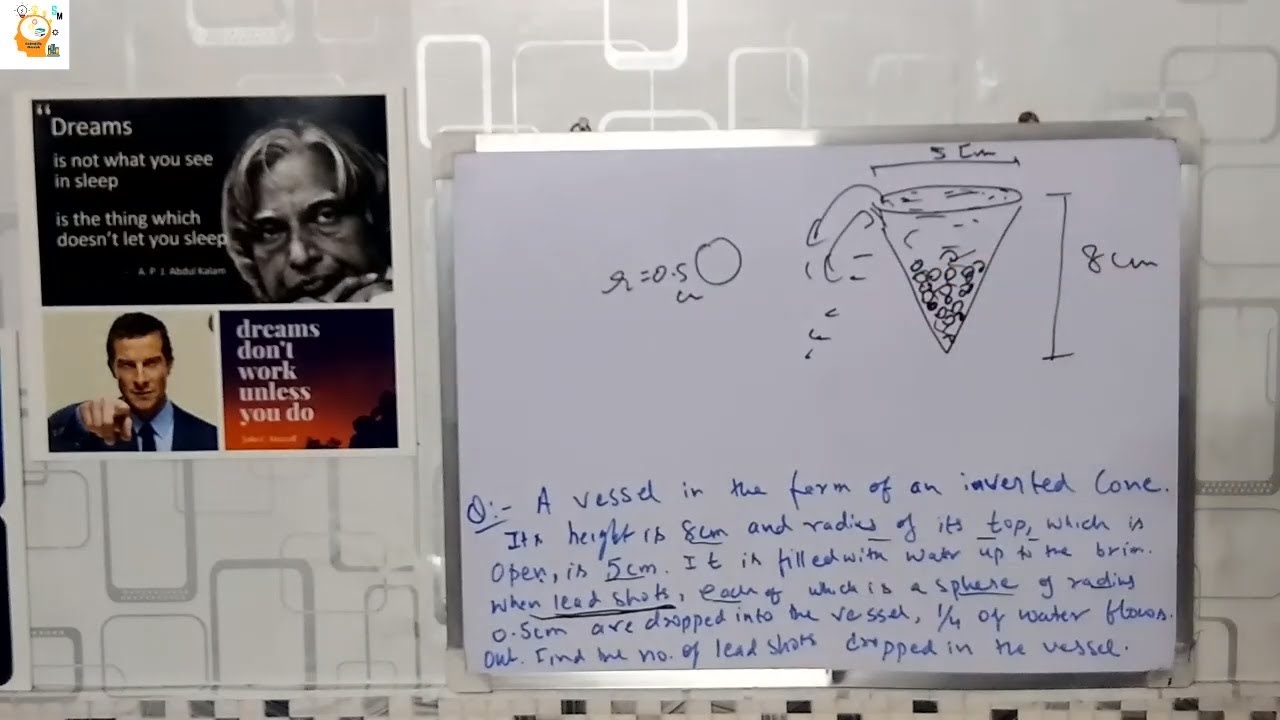 SM
“
Dreams
is not what you see
in sleep
is the thing which
doesn't let you sleep
- A. P. J. Abdul Kalam
dreams
don't
work
unless
you do
5 cm
r=0.5
8 cm
Q:- A vessel in the form of an inverted Cone.
Its height is 8cm and radius of its top, which is
Open, is 5cm. It is filled with water up to the brim.
When lead shots, each of which is a sphere of radius
0.5cm are dropped into the vessel, 1/4 of water flows.
Out. Find the no. of lead shots dropped in the vessel.